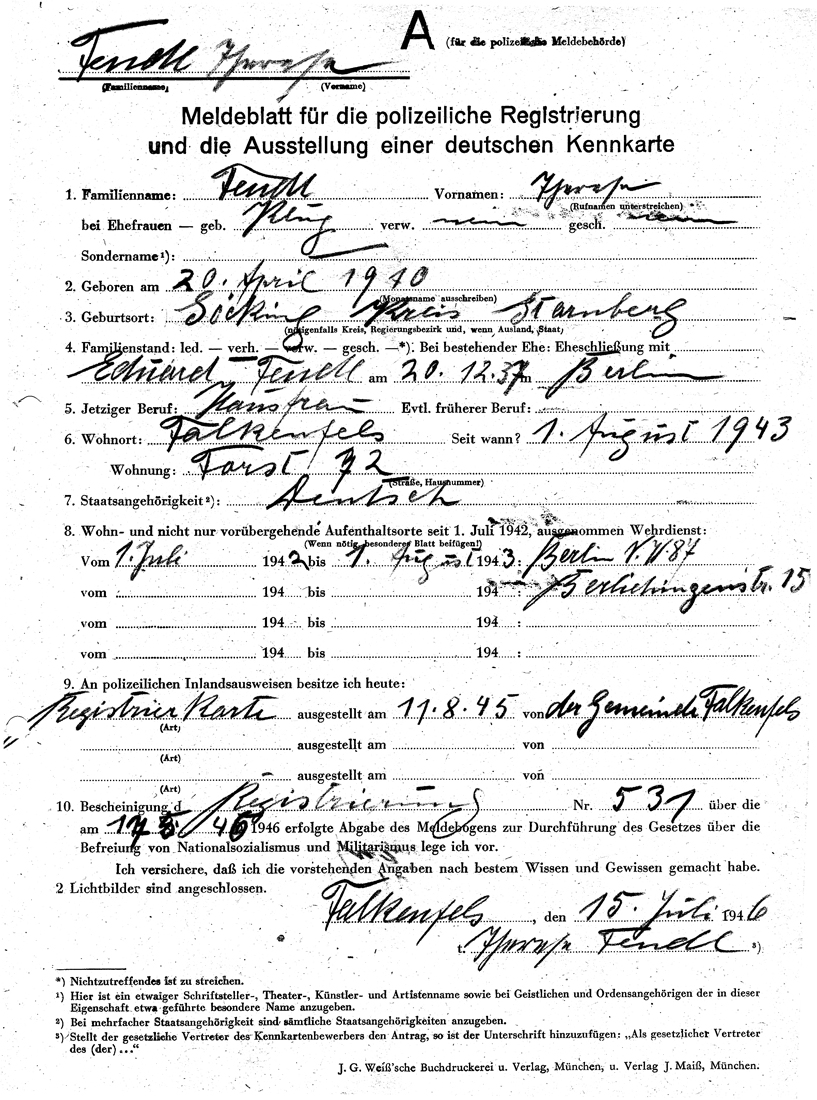 A (für die polizeiliche Meldebehörde)
Fendl Therese
(Familienname) (Vorname)
Meldeblatt für die polizeiliche Registrierung
und die Ausstellung einer deutschen Kennkarte
1. Familienname: Fendl Vornamen: Therese
(Rufnamen unterstreichen)
bei Ehefrauen — geb. Klug verw. nein gesch. nein
Sondername ¹): —
2. Geboren am 20. April 1910
(Monatsname ausschreiben)
3. Geburtsort: Söcking Kreis Starnberg
(nötigenfalls Kreis, Regierungsbezirk und, wenn Ausland, Staat)
4. Familienstand: led. — verh. — verw. — gesch. —*). Bei bestehender Ehe: Eheschließung mit
Eduard Fendl am 20. 12. 37 in Berlin
5. Jetziger Beruf: Hausfrau Evtl. früherer Beruf:
6. Wohnort: Falkenfels Seit wann? 1. August 1943
Wohnung: Forst 72
(Straße, Hausnummer)
7. Staatsangehörigkeit ²): Deutsch
8. Wohn- und nicht nur vorübergehende Aufenthaltsorte seit 1. Juli 1942, ausgenommen Wehrdienst:
(Wenn nötig, besonderes Blatt beifügen!)
Vom 1. Juli 1942 bis 1. August 1943: Berlin N.W.87
vom 194 bis 194 : Berlichingenstr. 15
vom 194 bis 194 :
vom 194 bis 194 :
9. An polizeilichen Inlandsausweisen besitze ich heute:
Registrier Karte ausgestellt am 11.8.45 von der Gemeinde Falkenfels
(Art)
ausgestellt am von
(Art)
ausgestellt am von
(Art)
10. Bescheinigung d Registrierung Nr. 531 über die
am 1946 erfolgte Abgabe des Meldebogens zur Durchführung des Gesetzes über die
Befreiung von Nationalsozialismus und Militarismus lege ich vor.
Ich versichere, daß ich die vorstehenden Angaben nach bestem Wissen und Gewissen gemacht habe.
2 Lichtbilder sind angeschlossen.
Falkenfels, den 15. Juli 1946
Therese Fendl ³)
*) Nichtzutreffendes ist zu streichen.
¹) Hier ist ein etwaiger Schriftsteller-, Theater-, Künstler- und Artistenname sowie bei Geistlichen und Ordensangehörigen der in dieser
Eigenschaft etwa geführte besondere Name anzugeben.
²) Bei mehrfacher Staatsangehörigkeit sind sämtliche Staatsangehörigkeiten anzugeben.
³) Stellt der gesetzliche Vertreter des Kennkartenbewerbers den Antrag, so ist der Unterschrift hinzuzufügen: „Als gesetzlicher Vertreter
des (der) ...“
J. G. Weiß'sche Buchdruckerei u. Verlag, München, u. Verlag J. Maiß, München.